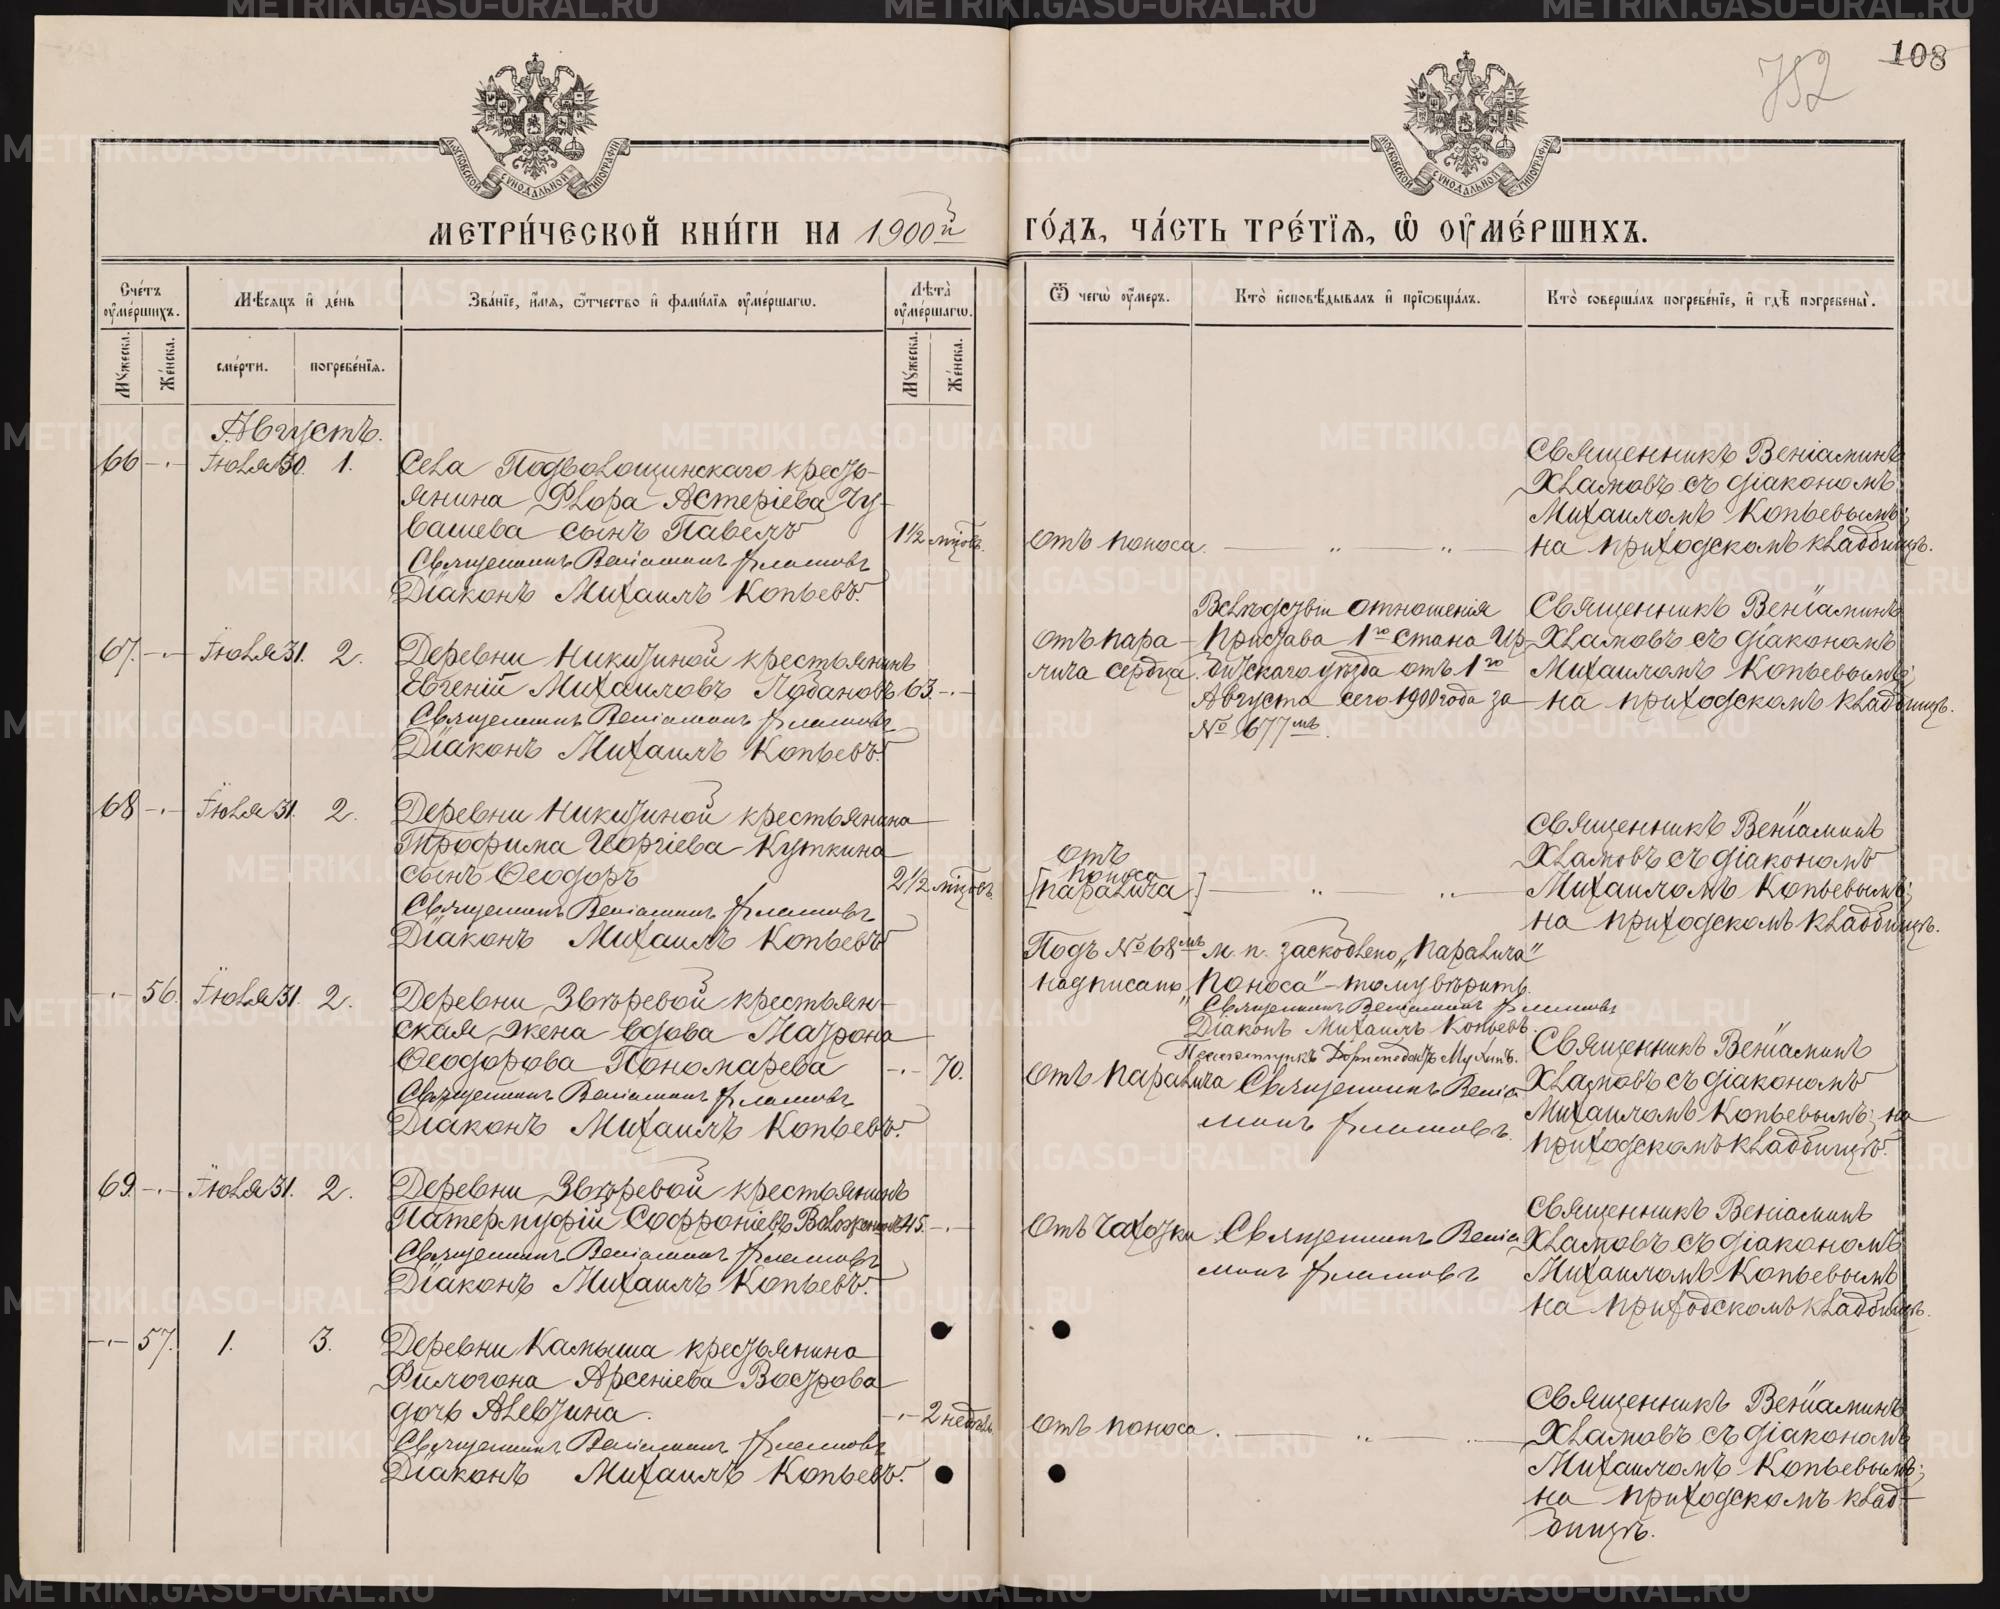 108
752
МОСКОВСКОЙ СѴНОДАЛЬНОЙ ТИПОГРАФІИ
МОСКОВСКОЙ СѴНОДАЛЬНОЙ ТИПОГРАФІИ
МЕТРИ́ЧЕСКОЙ КНИ́ГИ НА 1900й ГО́ДЪ, ЧА́СТЬ ТРЕ́ТІѦ, Ѡ ОУ҆МЕ́РШИХЪ.
Сче́тъ оу҆ме́ршихъ.
Мѣ́сяцъ и҆ де́нь
Зва́нїе, и҆́мѧ, ѻ҆́тчество и҆ фами́лїѧ оу҆ме́ршагѡ.
Лѣ́та оу҆ме́ршагѡ.
Ѿ чегѡ̀ оу҆́меръ.
Кто̀ и҆сповѣ́дывалъ и҆ прїѡбща́лъ.
Кто̀ соверша́лъ погребе́нїе, и҆ гдѣ̀ погребены̀.
Мꙋ́жеска.
Же́нска.
сме́рти.
погребе́нїѧ.
Мꙋ́жеска.
Же́нска.
Августъ.
66 —.— Іюля 30. 1.
Села Подволошинскаго кресть-
янина Флора Астеріева Чу-
вашева сынъ Павелъ
1½ мцовъ.
Священникъ Веніаминъ Хламовъ
Діаконъ Михаилъ Копьевъ.
отъ поноса.
Священникъ Веніаминъ
Хламовъ съ діакономъ
Михаиломъ Копьевымъ;
на приходскомъ кладбищѣ.
67. —.— Іюля 31. 2.
Деревни Никитиной крестьянинъ
Евгеній Михаиловъ 63. —.—
Священникъ Веніаминъ Хламовъ
Діаконъ Михаилъ Копьевъ.
отъ пара-
лича сердца.
Вслѣдствіи отношенія
Пристава 1го стана Ир-
битскаго уѣзда отъ 1го
Августа сего 1900 года за
№ 677мъ.
Священникъ Веніаминъ
Хламовъ съ діакономъ
Михаиломъ Копьевымъ;
на приходскомъ кладбищѣ.
68 —.— Іюля 31. 2.
Деревни Никитиной крестьянина
Трофима Георгіева Куткина
сынъ Ѳеодоръ
2½ мцовъ
Священникъ Веніаминъ Хламовъ
Діаконъ Михаилъ Копьевъ
отъ
поноса
[паралича]
Священникъ Веніаминъ
Хламовъ съ діакономъ
Михаиломъ Копьевымъ;
на приходскомъ кладбищѣ.
Подъ № 68мъ м. п. заскоблено „паралича“
надписано „поноса“ – тому вѣрить.
Священникъ Веніаминъ Хламовъ
Діаконъ Михаилъ Копьевъ.
Псаломщикъ Мухинъ.
—.— 56. Іюля 31. 2.
Деревни Звѣревой крестьян-
ская жена вдова Матрона
Ѳеодорова Пономарева
—.— 70.
Священникъ Веніаминъ Хламовъ
Діаконъ Михаилъ Копьевъ.
отъ паралича
Священникъ Веніа-
минъ Хламовъ.
Священникъ Веніаминъ
Хламовъ съ діакономъ
Михаиломъ Копьевымъ; на
приходскомъ кладбищѣ.
69. —.— Іюля 31. 2.
Деревни Звѣревой крестьянинъ
Патермуфій Софроніевъ 45. —.—
Священникъ Веніаминъ Хламовъ
Діаконъ Михаилъ Копьевъ.
отъ чахотки
Священникъ Веніа-
минъ Хламовъ
Священникъ Веніаминъ
Хламовъ съ діакономъ
Михаиломъ Копьевымъ
на приходскомъ кладбищѣ.
—.— 57. 1. 3.
Деревни Камыша крестьянина
Филогона Арсеніева Вострова
дочь Алевтина.
—.— 2 недѣль
Священникъ Веніаминъ Хламовъ
Діаконъ Михаилъ Копьевъ.
отъ поноса.
Священникъ Веніаминъ
Хламовъ съ діакономъ
Михаиломъ Копьевымъ;
на приходскомъ клад-
бищѣ.
METRIKI.GASO-URAL.RU